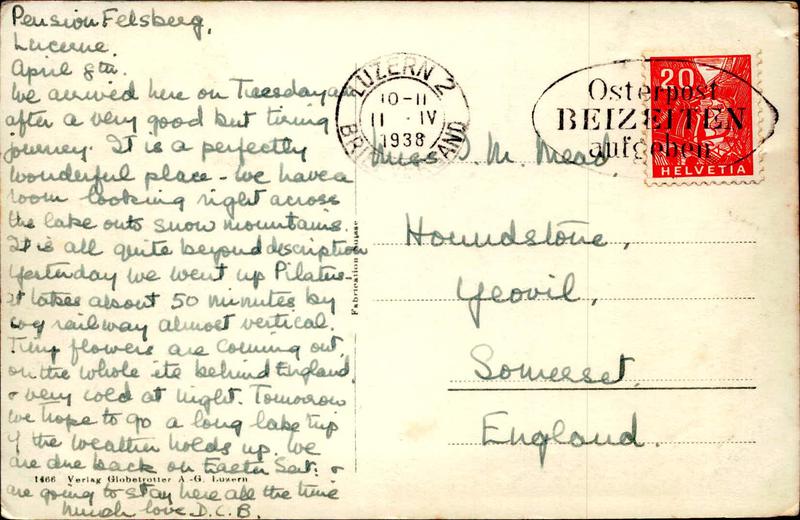 Pension Felsberg,
Lucerne.
April 8th.
We arrived here on Tuesday am
after a very good but tiring
journey. It is a perfectly
wonderful place - we have a
room looking right across
the lake onto snow mountains.
It is all quite beyond discription
Yesterday we went up Pilatus -
it takes about 50 minutes by
cog railway almost vertical.
Tiny flowers are coming out,
on the whole its behind England,
& very cold at night. Tomorrow
we hope to go a long lake trip
if the weather holds up. We
are due back on Easter Sat: &
are going to stay here all the time
Much love D.C.B.
1466 Verlag Globetrotter A.-G. Luzern
Fabrication Suisse
LUZERN 2
10-11
11 · IV
1938
Osterpost
BEIZEITEN
aufgeben
20
HELVETIA
Miss D. M. Mead
Houndstone,
Yeovil,
Somerset.
England.